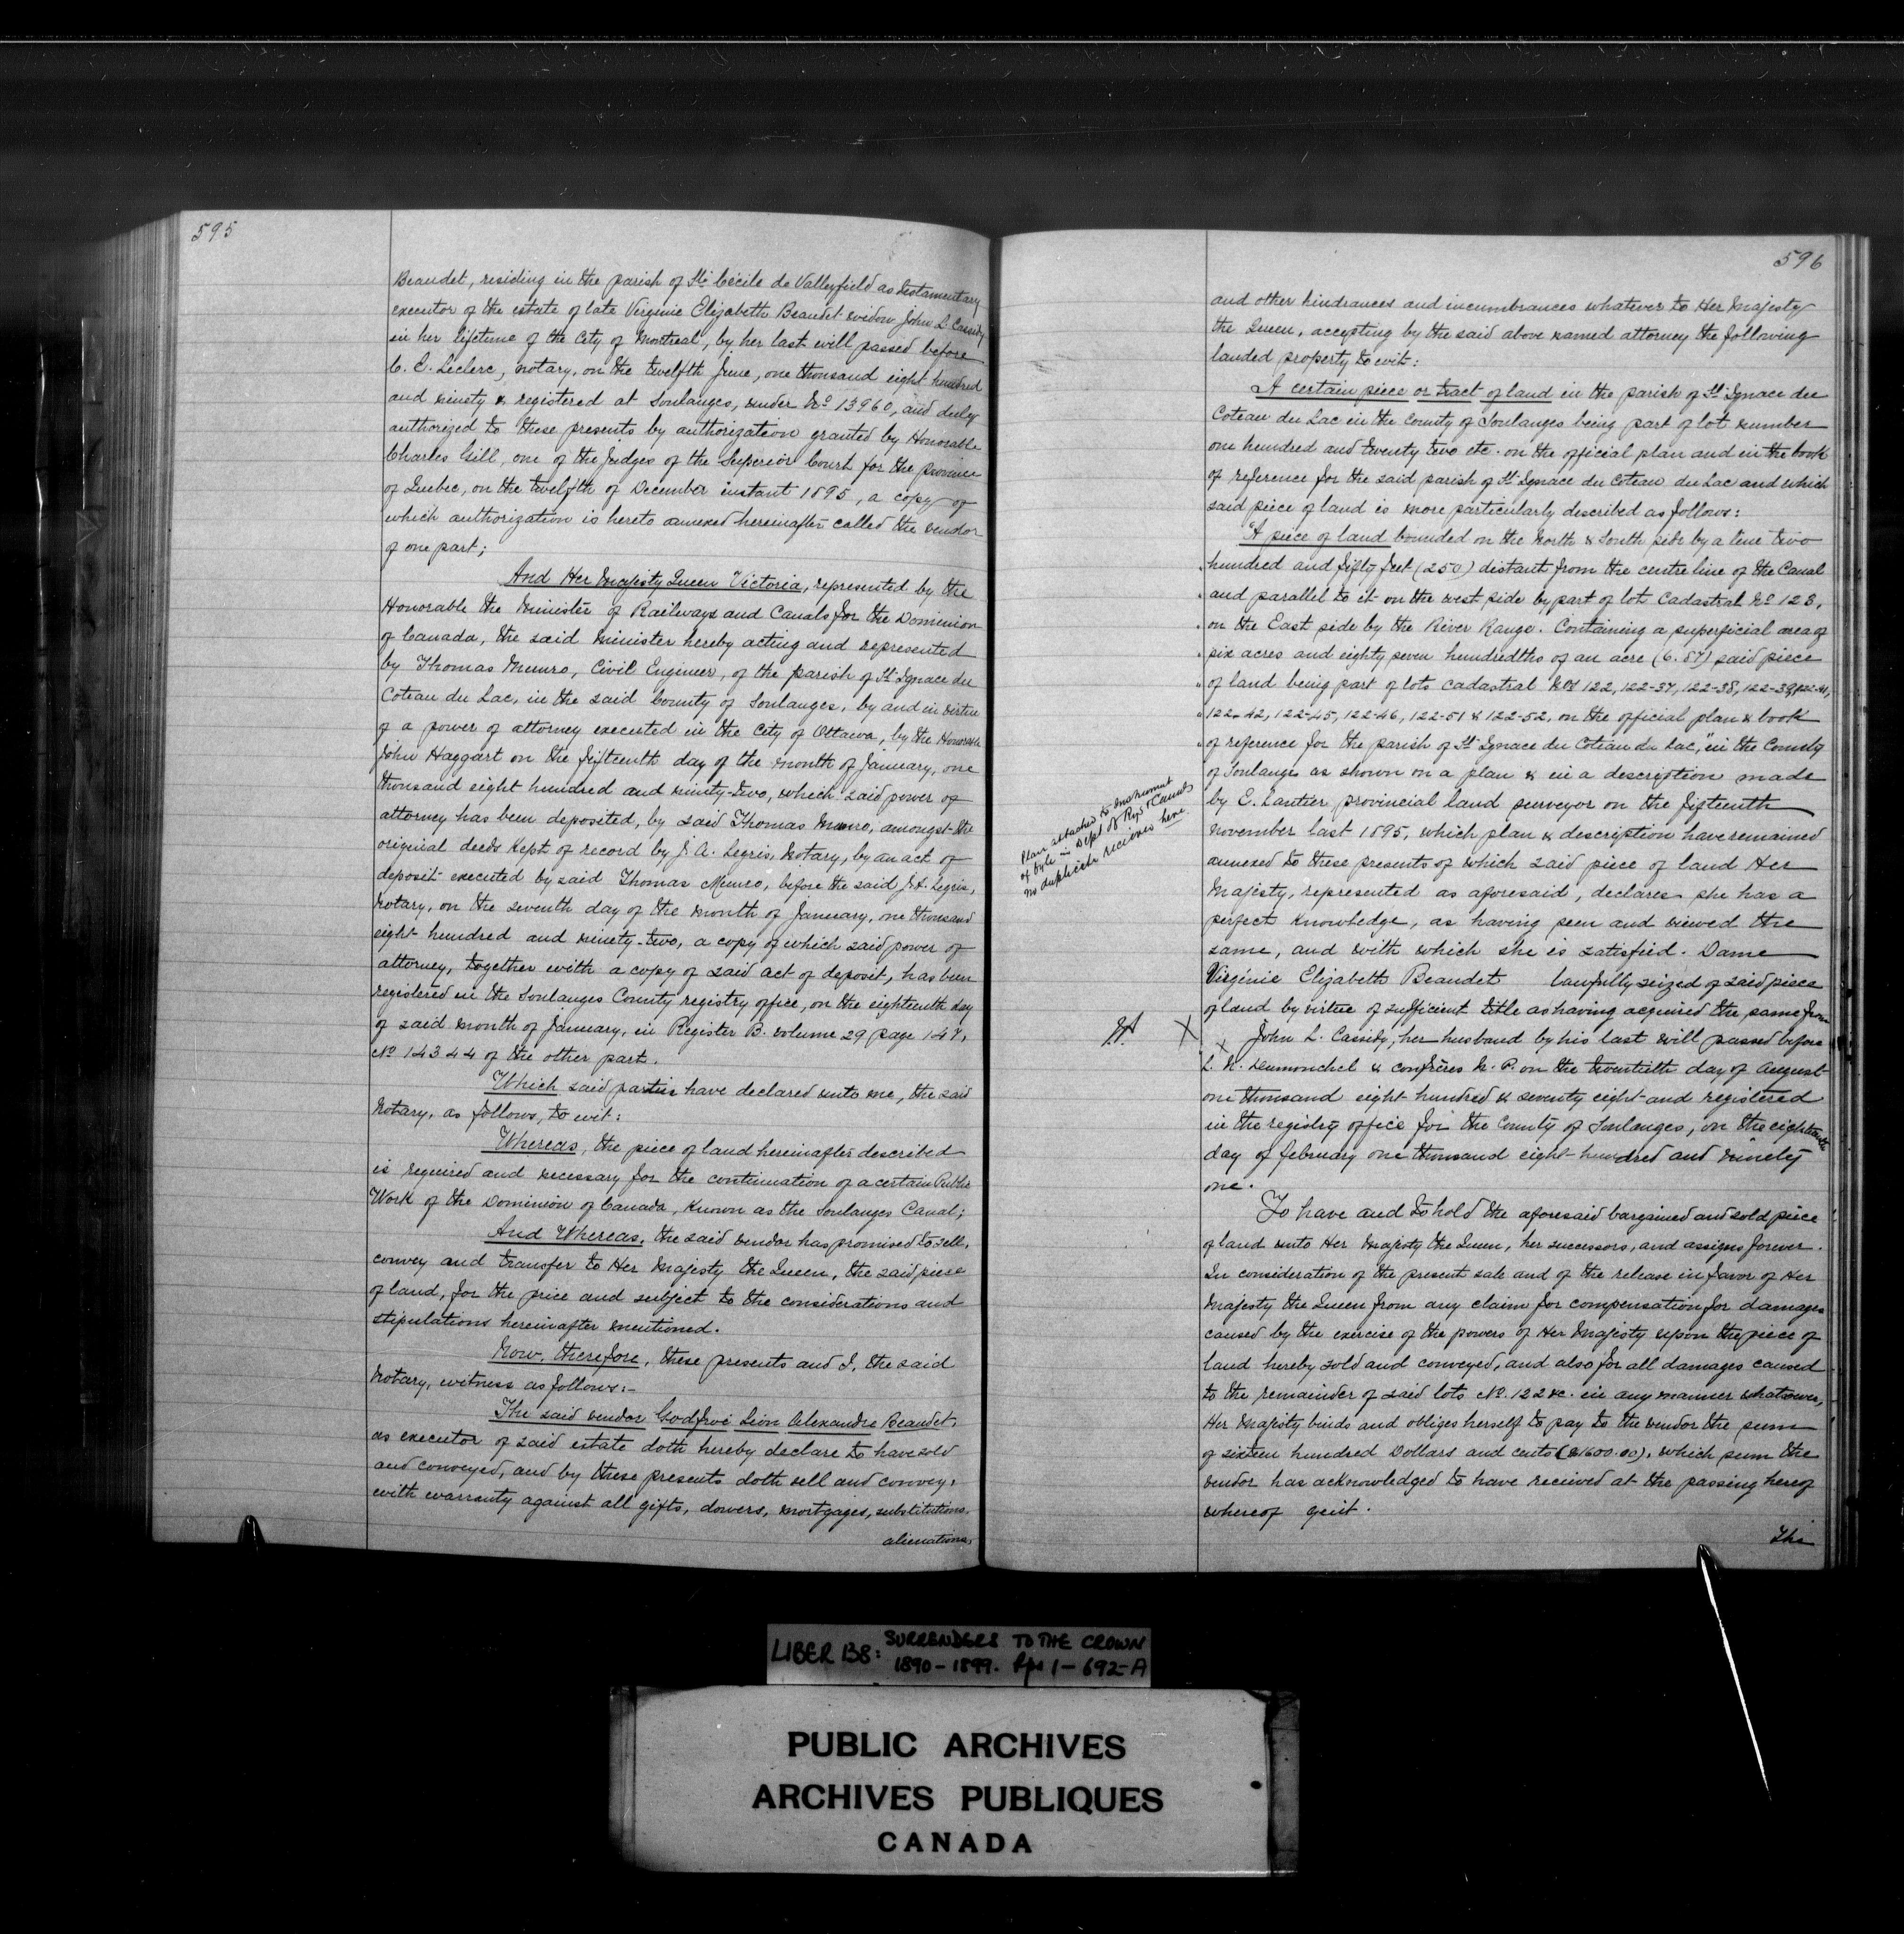 595
Beaudet, residing in the parish of Ste Cécile de Valleyfield as testamentary
executor of the estate of late Virginie Elizabeth Beaudet widow John L. Cassidy
in her lifetime of the City of Montreal, by her last will passed before
C. E. Leclerc, notary, on the twelfth June, one thousand eight hundred
and ninety & registered at Soulanges, under No 13960, and duly
authorized to these presents by authorization granted by Honorable
Charles Gill, one of the Judges of the Superior Court for the province
of Quebec, on the twelfth of December instant 1895, a copy of
which authorization is hereto annexed hereinafter called the vendor
of one part;
And Her Majesty Queen Victoria, represented by the
Honorable the Minister of Railways and Canals for the Dominion
of Canada, the said Minister hereby acting and represented
by Thomas Munro, Civil Engineer, of the parish of St Ignace du
Coteau du Lac, in the said County of Soulanges, by and in virtue
of a power of attorney executed in the City of Ottawa, by the Honorable
John Haggart on the fifteenth day of the month of January, one
thousand eight hundred and ninety-two, which said power of
attorney has been deposited, by said Thomas Munro, amongst the
original deeds kept of record by J. A. Legris, Notary, by an act of
deposit executed by said Thomas Munro, before the said J. A. Legris,
Notary, on the seventh day of the month of January, one thousand
eight hundred and ninety-two, a copy of which said power of
attorney, together with a copy of said act of deposit, has been
registered in the Soulanges County registry office, on the eighteenth day
of said month of January, in Register B. volume 29 page 147,
No 14344 of the other part.
Which said parties have declared unto me, the said
Notary, as follows, to wit:
Whereas, the piece of land hereinafter described
is required and necessary for the continuation of a certain Public
Work of the Dominion of Canada, known as the Soulanges Canal;
And Whereas, the said vendor has promised to sell,
convey and transfer to Her Majesty the Queen, the said piece
of land, for the price and subject to the considerations and
stipulations hereinafter mentioned.
Now, therefore, these presents and I, the said
Notary, witness as follows:-
The said vendor Godfroi Léon Alexandre Beaudet,
as executor of said estate doth hereby declare to have sold
and conveyed, and by these presents doth sell and convey,
with warranty against all gifts, dowers, mortgages, substitutions,
alienations,
596
and other hindrances and incumbrances whatever to Her Majesty
the Queen, accepting by the said above named attorney the following
landed property to wit:
A certain piece or tract of land in the parish of St Ignace du
Coteau du Lac in the County of Soulanges being part of lot number
one hundred and twenty two etc. on the official plan and in the book
of reference for the said parish of St Ignace du Coteau du Lac and which
said piece of land is more particularly described as follows:
"A piece of land bounded on the North & South side by a line two
hundred and fifty feet (250) distant from the centre line of the Canal
and parallel to it on the west side by part of lot Cadastral No 123,
on the East side by the River Range. Containing a superficial area of
six acres and eighty seven hundredths of an acre (6.87) said piece
of land being part of lots Cadastral Nos 122, 122-37, 122-38, 122-39, 122-41,
122-42, 122-45, 122-46, 122-51 & 122-52, on the official plan & book
of reference for the parish of St Ignace du Coteau du Lac," in the County
of Soulanges as shown on a plan & in a description made
by E. Lantier provincial land surveyor on the fifteenth
November last 1895, which plan & description have remained
annexed to these presents of which said piece of land Her
Majesty, represented as aforesaid, declares she has a
perfect knowledge, as having seen and viewed the
same, and with which she is satisfied. Dame
Virginie Elizabeth Beaudet lawfully seized of said piece
of land by virtue of sufficient title as having acquired the same from
x John L. Cassidy, her husband by his last will passed before
& confrères N. P. on the twentieth day of August
one thousand eight hundred & seventy eight and registered
in the registry office for the County of Soulanges, on the eighteenth
day of February one thousand eight hundred and ninety
one.
To have and to hold the aforesaid bargained and sold piece
of land unto Her Majesty the Queen, her successors, and assigns forever.
In consideration of the present sale and of the release in favor of Her
Majesty the Queen from any claim for compensation for damages
caused by the exercise of the powers of Her Majesty upon the piece of
land hereby sold and conveyed, and also for all damages caused
to the remainder of said lots No. 122 &c. in any manner whatsoever,
Her Majesty binds and obliges herself to pay to the vendor the sum
of sixteen hundred Dollars and cents ($1600.00), which sum the
vendor has acknowledged to have received at the passing hereof
whereof quit.
The
Plan attached to Instrument
of file in Dept of Rys & Canals
No duplicate received here.
X
LIBER 138: SURRENDERS TO THE CROWN
1890-1899. Pps 1-692-A
PUBLIC ARCHIVES
ARCHIVES PUBLIQUES
CANADA